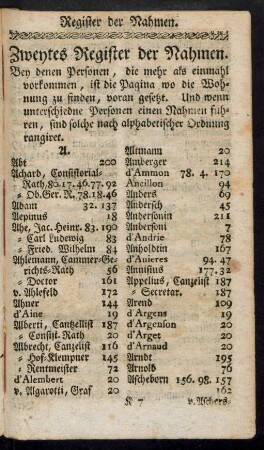 Register der Nahmen.
Zweytes Register der Nahmen.
Bey denen Personen, die mehr als einmahl
vorkommen, ist die Pagina wo die Woh-
nung zu finden, voran gesetzt. Und wenn
unterschiedne Personen einen Nahmen füh-
ren, sind solche nach alphabetischer Ordnung
rangiret.
A.
Abt 200
Achard, Consistorial-
Rath, 80.17.46.77.92
= Ob. Ger. R. 78.18.46
Adam 32. 137
Aepinus 18
Ahe, Jac. Heinr. 83. 190
= Carl Ludewig 83
= Fried. Wilhelm 84
Ahlemann, Cammer-Ge-
richts-Rath 56
= Doctor 161
v. Ahlefeld 172
Ahner 144
d'Aine 19
Alberti, Cantzellist 187
= Consist. Rath 20
Albrecht, Canzelist 116
= Hof-Klempner 145
= Rentmeister 72
d'Alembert 20
v. Algarotti, Graf 20
Altmann 20
Amberger 214
d'Ammon 78. 4. 170
Ancillon 94
Anders 69
Andersch 45
Andersonin 211
Andersoni 7
d'Andrie 78
Anholdtin 167
d'Anieres 94. 47
Annisius 177. 32
Appelius, Canzelist 187
= Secretar. 187
Arend 109
d'Argens 19
d'Argenson 20
d'Arget 20
d'Arnaud 20
Arndt 195
Arnold 76
Ascheborn 156. 98. 157
162
K 7 v. Aschers-